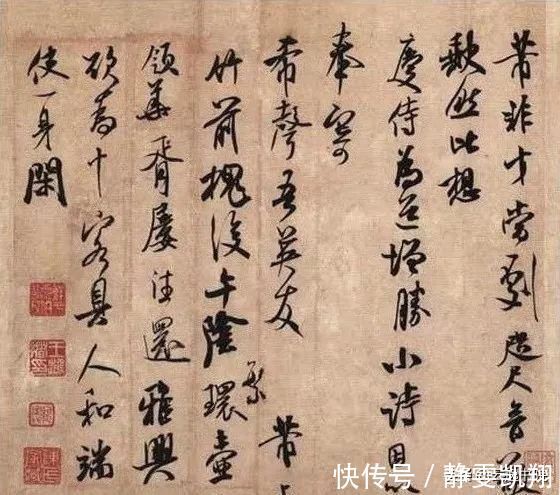 芾非才當劇咫尺音
然比想
慶侍為道增勝小詩因
奉寄
希聲吾英友
芾
竹前槐後午陰環壺
繁
領華胥屢往還雅興
欲為十客具人和端
使一身閑
快传号／静雯凯翔